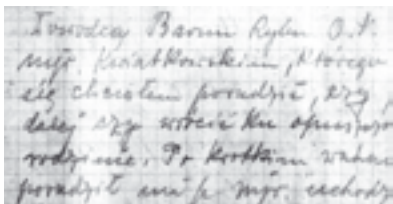 Dowódcą Baonu Rylem O.K.
mjr. Kwiatkowskim, którego
się chciałem poradzić, czy
dalej czy wrócić ku opuszczo
rodzinie. Po krótkim wahan
poradził mi p. mjr. uchodz